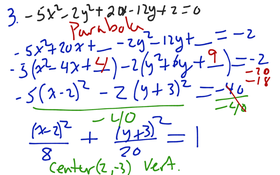 3. -5x²-2y²+20x-12y+2=0
Parabola
-5x²+20x+__ -2y²-12y+__ = -2
-5(x²-4x+4)-2(y²+6y+9)=-2
-20
-18
-5(x-2)² -2(y+3)² = -40
-40 -40
(x-2)²/8 + (y+3)²/20 = 1
center(2,-3) Vert.